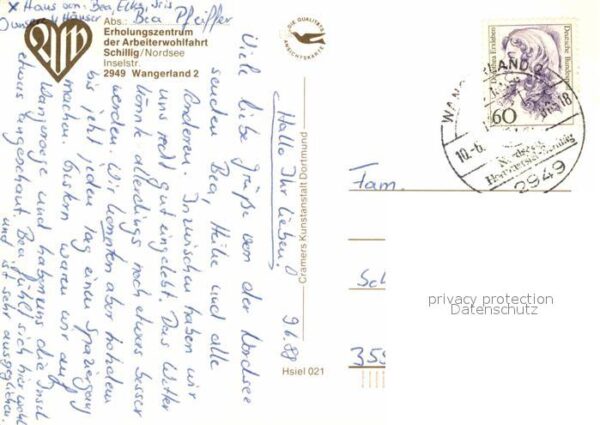 x Haus von: Bea, Elke, Iris
Jansen u. Häuser
Abs.: Bea Pfeiffer
Erholungszentrum
der Arbeiterwohlfahrt
Schillig/Nordsee
Inselstr.
2949 Wangerland 2
DIE QUALITÄTS
ANSICHTSKARTE
Cramers Kunstanstalt Dortmund
Hsiel 021
9.6.88
Hallo Ihr Lieben!
Viele liebe Grüße von der Nordsee
senden Bea, Heike und alle
Anderen. Inzwischen haben wir
uns recht gut eingelebt. Das Wetter
könnte allerdings noch etwas besser
werden. Wir konnten aber trotzdem
bis jetzt jeden Tag einen Spaziergang
machen. Gestern waren wir auf
Wangerooge und haben uns die Insel
etwas angeschaut. Bea fühlt sich hier wohl
und ist sehr ausgeglichen.
Deutsche Bundespost
Dorothea Erxleben
60
WANGERLAND 2
10.-6.
18
Nordsee
2949
Fam.
Sch
355
privacy protection
Datenschutz